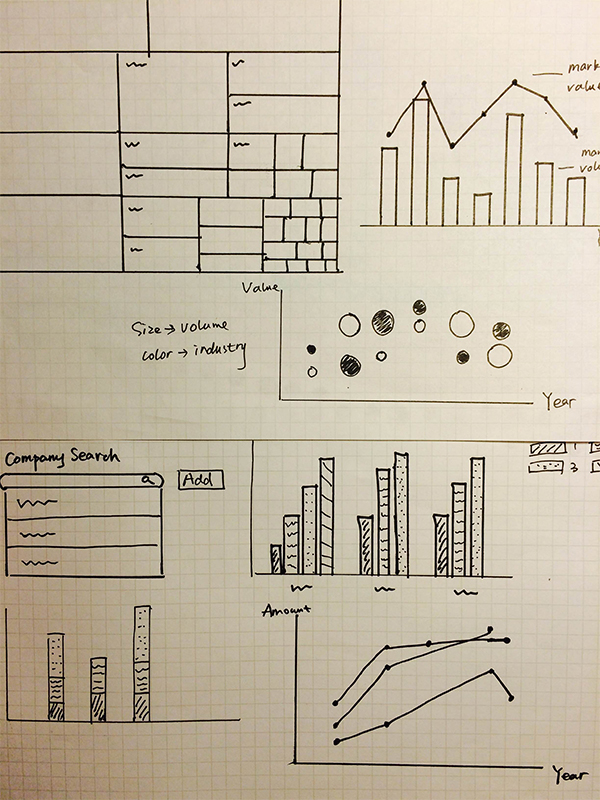 Value
Size → volume
color → industry
Year
Company Search
Add
1
3
Amount
Year